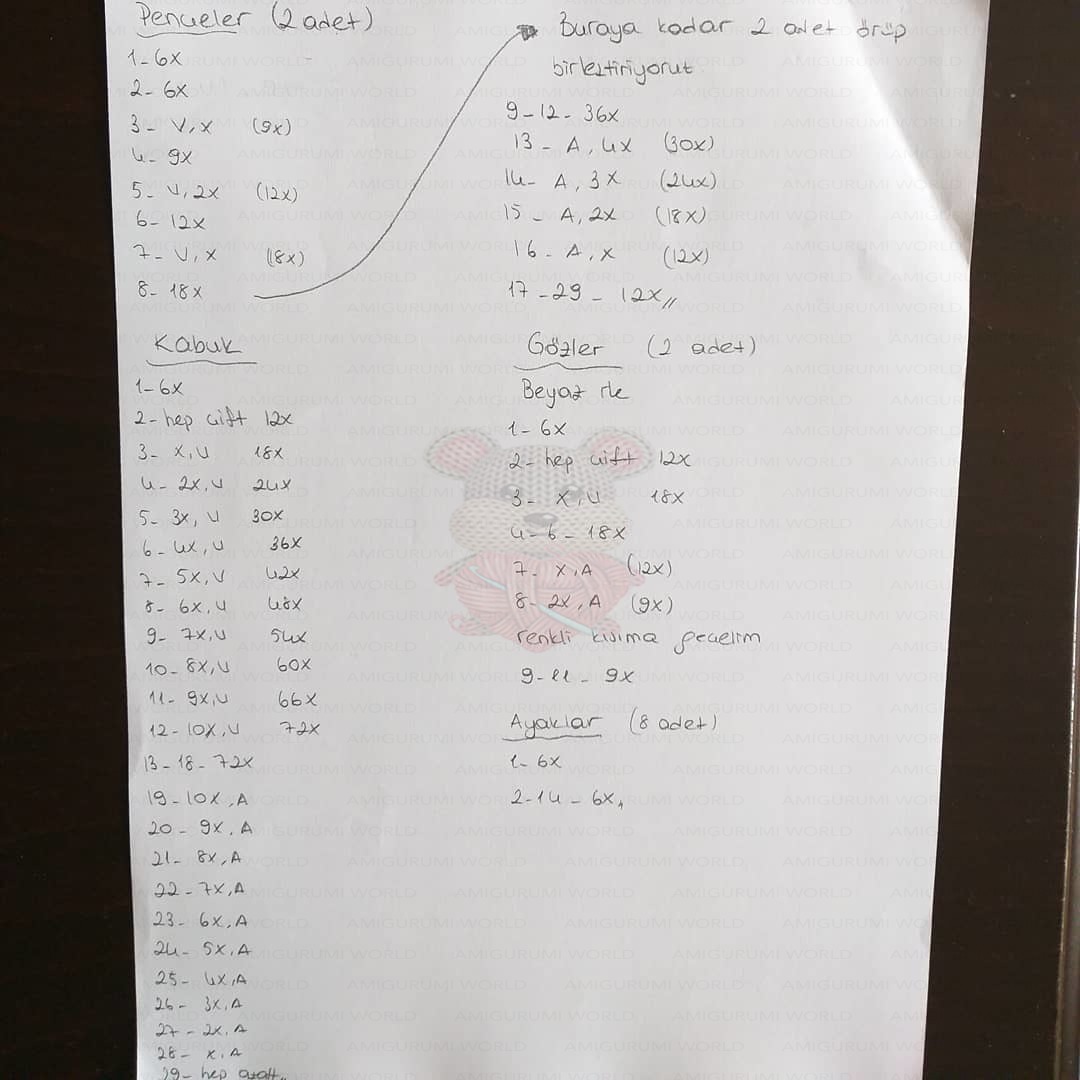 Pençeler (2 adet)
1-6x
2-6x
3- V,x (9x)
4-9x
5-V,2x (12x)
6-12x
7-V,x (18x)
8-18x
Buraya kadar 2 adet örüp
birleştiriyoruz
9-12-36x
13-A,4x (30x)
14-A,3x (24x)
15-A,2x (18x)
16-A,x (12x)
17-29-12x,,
Kabuk
1-6x
2-hep çift 12x
3-x,V 18x
4-2x,V 24x
5-3x,V 30x
6-4x,V 36x
7-5x,V 42x
8-6x,V 48x
9-7x,V 54x
10-8x,V 60x
11-9x,V 66x
12-10x,V 72x
13-18-72x
19-10x,A
20-9x,A
21-8x,A
22-7x,A
23-6x,A
24-5x,A
25-4x,A
26-3x,A
27-2x,A
28-x,A
29-hep azalt..
Gözler (2 adet)
Beyaz ile
1-6x
2-hep çift 12x
3-x,V 18x
4-6-18x
7-x,A (12x)
8-2x,A (9x)
renkli kısıma geçelim
9-11-9x
Ayaklar (8 adet)
1-6x
2-14-6x,
AMIGURUMI WORLD